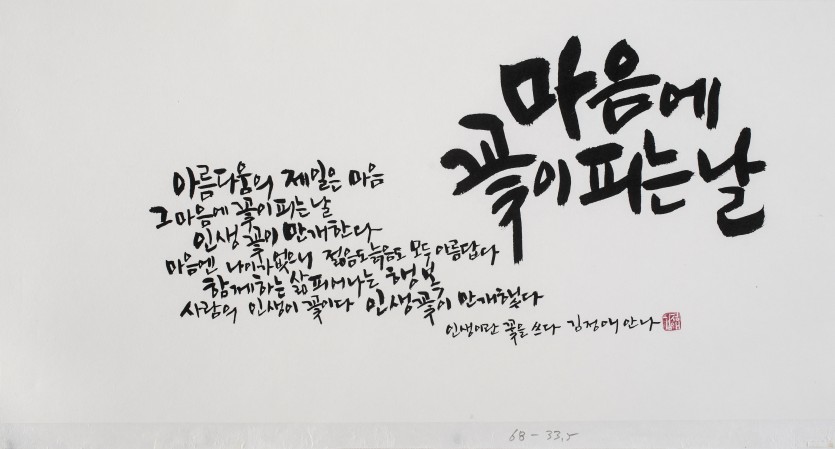 마음에
꽃이 피는 날
아름다움의 제일은 마음
그 마음에 꽃이 피는 날
인생 꽃이 만개한다
마음엔 나이가 없으니 젊음도 늙음도 모두 아름답다
함께하는 삶 피어나는 행복
사람의 인생이 꽃이다 인생꽃이 만개했다
인생이란 꽃을 쓰다 김정애 안나
68-33.5